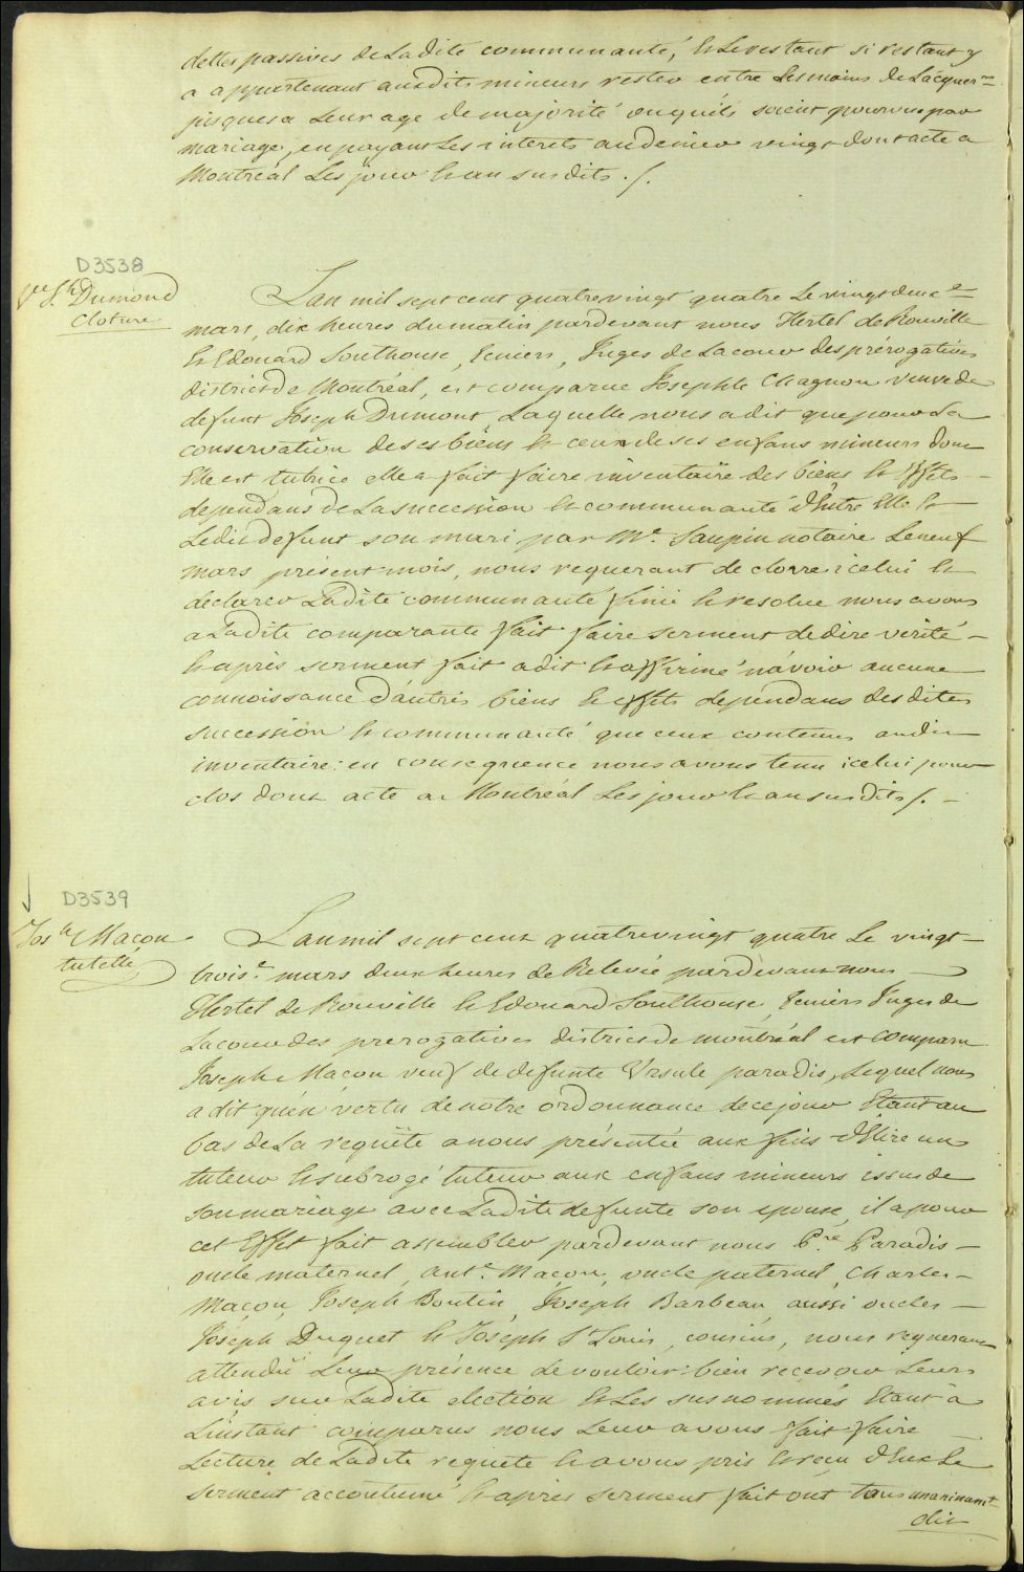 dettes passives de Ladite communauté, & Le restant si restant y
a appartenant auxdits mineurs rester entre Les mains de Lacquer.
jusques a Leur age de majorité ou qu'ils soient pourvus par
mariage, en payant Les interets au denier vingt dont acte a
Montréal Les jour & an susdits ./.
D3538
Ve Jh Dumond
Cloture
Lan mil sept cent quatrevingt quatre Le vingt deuxe
mars, dix heures du matin pardevant nous Hertel de Rouville
& Edouard Southouse, Ecuiers, Juges de La cour des prérogatives
district de Montréal, est comparue Josephte Chagnon veuve de
defunt Joseph Dumont, Laquelle nous a dit que pour La
conservation de ses biens & ceux de ses enfans mineurs dont
Elle est tutrice elle a fait faire inventaire des biens & Effets
dependans de La succession & communauté d'Entre Elle &
Ledit defunt son mari par Me. Saupin notaire Le neuf
mars present mois, nous requerant de clorre icelui &
declarer Ladite communauté finie & resolue nous avons
a Ladite comparante fait faire serment de dire verité
& après serment fait a dit & affirmé n'avoir aucune
connoissance d'autres biens & effets dependans des dites
succession & communauté que ceux contenus audit
inventaire: en consequence nous avons tenu icelui pour
clos dont acte a Montréal Les jour & an susdits ./.
D3539
Josh Maçon
tutelle
Lan mil sept cent quatrevingt quatre Le vingt
trois.e mars deux heures de Relevée pardevant nous
Hertel de Rouville & Edouard Southouse, Ecuiers Juges de
La cour des prerogatives district de montréal est comparu
Joseph Maçon veuf de defunte Ursule paradis, Lequel nous
a dit qu'en vertu de notre ordonnance de ce jour Etant au
bas de La requête a nous présentée aux fins d'Elire un
tuteur & subrogé tuteur aux enfans mineurs issus de
son mariage avec Ladite defunte son epouse, il a pour
cet Effet fait assembler pardevant nous P.re Paradis
oncle maternel, ant.e Maçon, oncle paternel, Charles
Maçon, Joseph Boutin, Joseph Barbeau, aussi oncles
Joseph Duquet & Joseph St Louis, cousins, nous requerant
attendu Leur présence de vouloir bien recevoir Leurs
avis sur Ladite election & Les susnommés Etant à
L'instant comparus nous Leur avons fait faire
Lecture de Ladite requete & avons pris & recu d'Eux Le
serment accoutumé & après serment fait ont tous unanimemt
dit